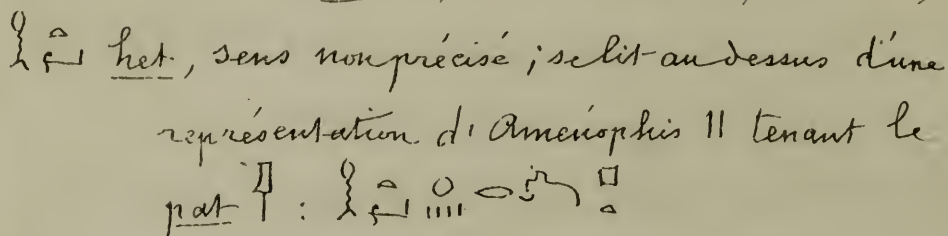 𓎛𓏏𓂡 het, sens non précisé ; se lit au dessus d'une
représentation d'Amenophis II tenant le
pat : 𓎛𓏏𓂡